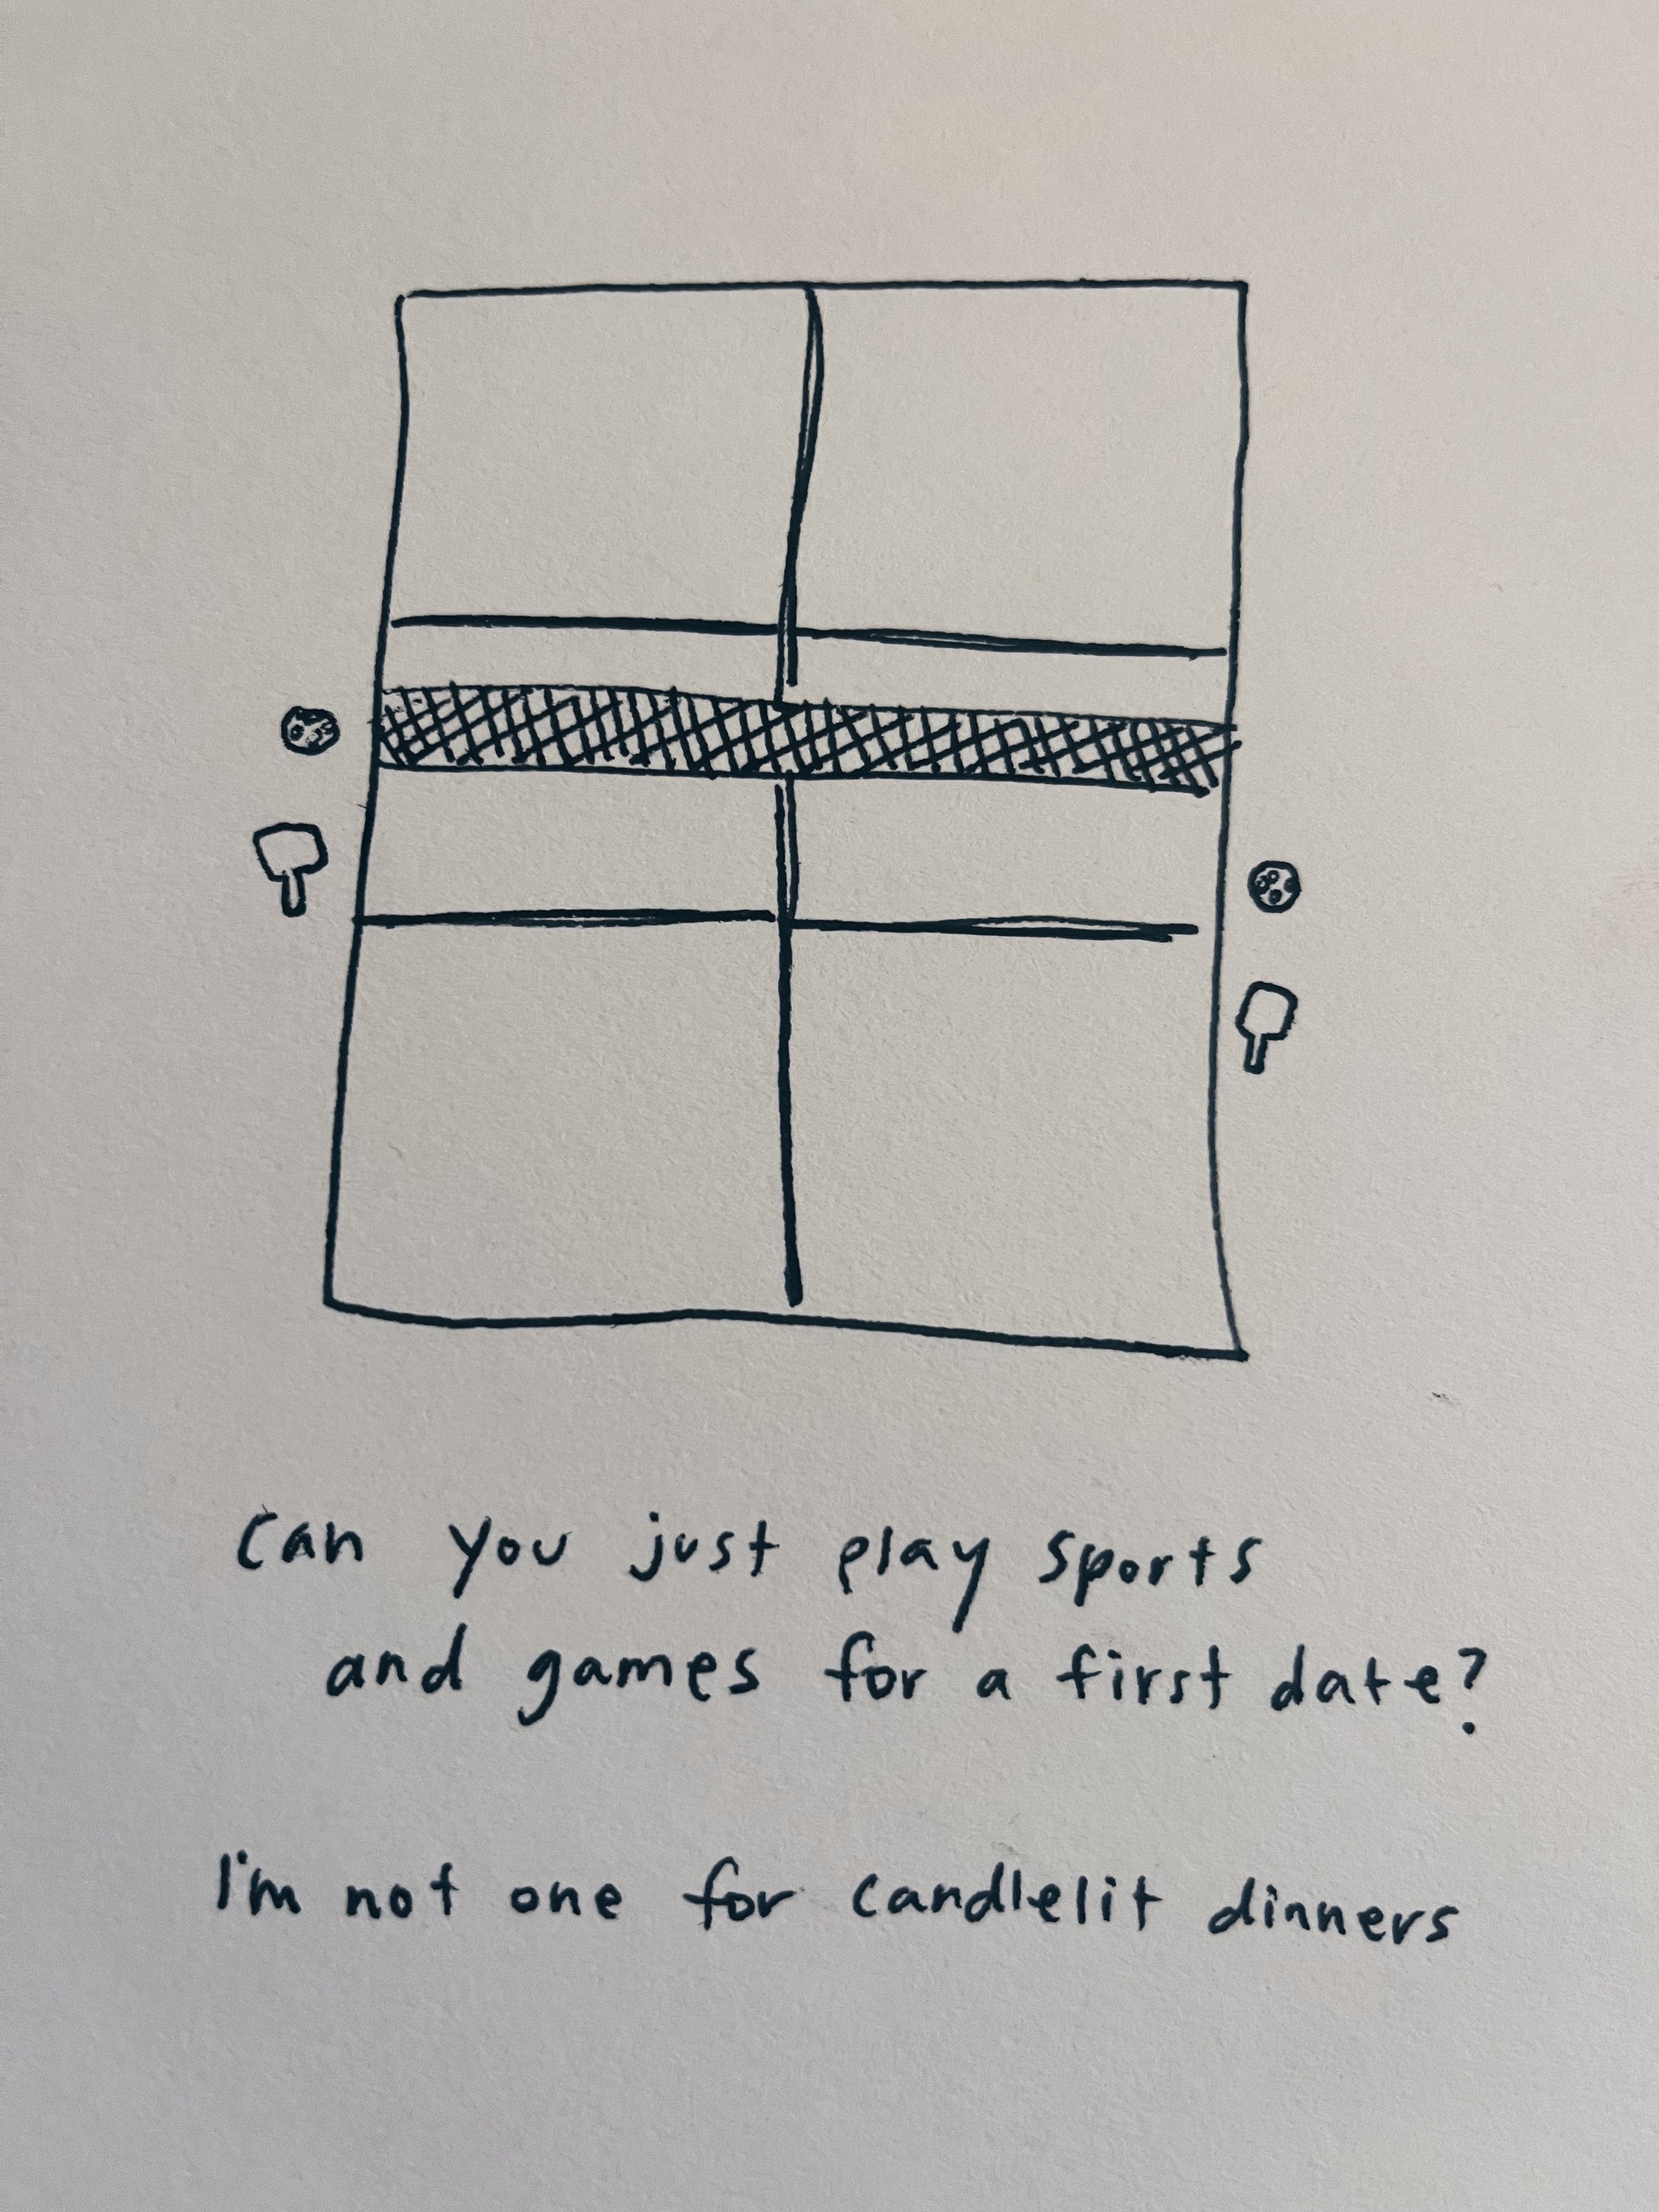 Can you just play sports
and games for a first date?
I'm not one for candlelit dinners